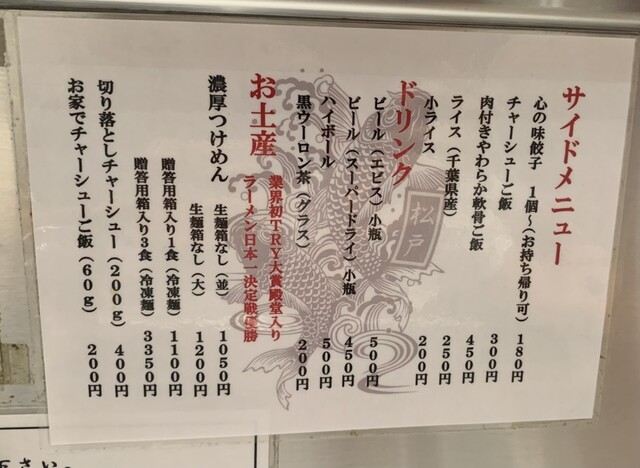 サイドメニュー
心の味餃子 1個~(お持ち帰り可) 180円
チャーシューご飯 300円
肉付きやわらか軟骨ご飯 450円
ライス(千葉県産) 250円
小ライス 200円
ドリンク
ビール(エビス)小瓶 500円
ビール(スーパードライ)小瓶 450円
ハイボール 500円
黒ウーロン茶(グラス) 200円
お土産
業界初TRY大賞殿堂入り
ラーメン日本一決定戦優勝
濃厚つけめん
生麺箱なし(並) 1050円
生麺箱なし(大) 1200円
贈答用箱入り1食(冷凍麺) 1100円
贈答用箱入り3食(冷凍麺) 3350円
切り落としチャーシュー(200g) 400円
お家でチャーシューご飯(60g) 200円
松戸